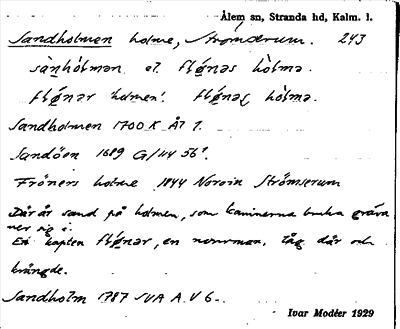 Ålem sn, Stranda hd, Kalm. l.
Sandholmen holme, Strömserum. 243
sànhòlman el. flønas hòlma.
fløner holmen. flønas hòlma.
Sandholmen 1700 K Å7 1.
Sandöen 1689 G/114 56
Fröners holme 1844 Strömserum
Där är sand på holmen, som kaninerna bruka gräva
ner sig i.
En kapten fløner, en norrman, låg där och
krängde.
Sandholm 1787 SVA A. V 6.
Ivar Modéer 1929